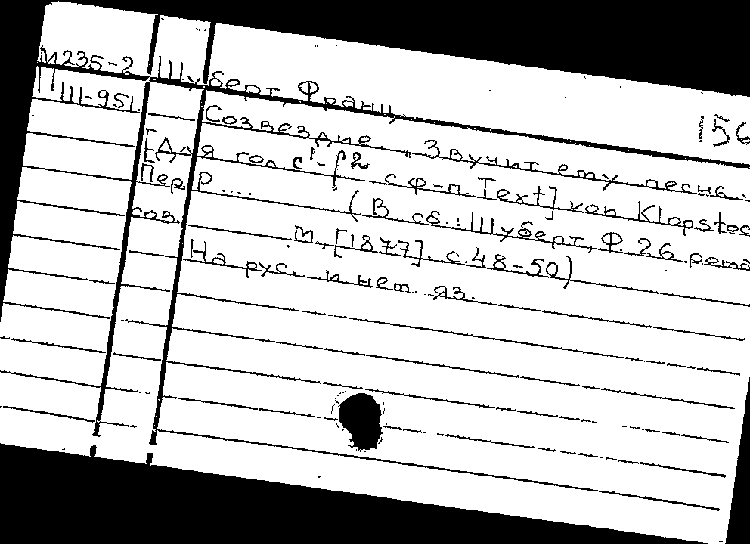 М235-2 Шуберт, Франц
Ш-951
156
Созвездие. „Звучит ему песна.
[Для гол. c¹-f² с ф-п. Text] von Klopstoc
Пер Р.... (В сб.: Шуберт, Ф. 26
М., [1877]. с 48-50)
На рус. и нем. яз.